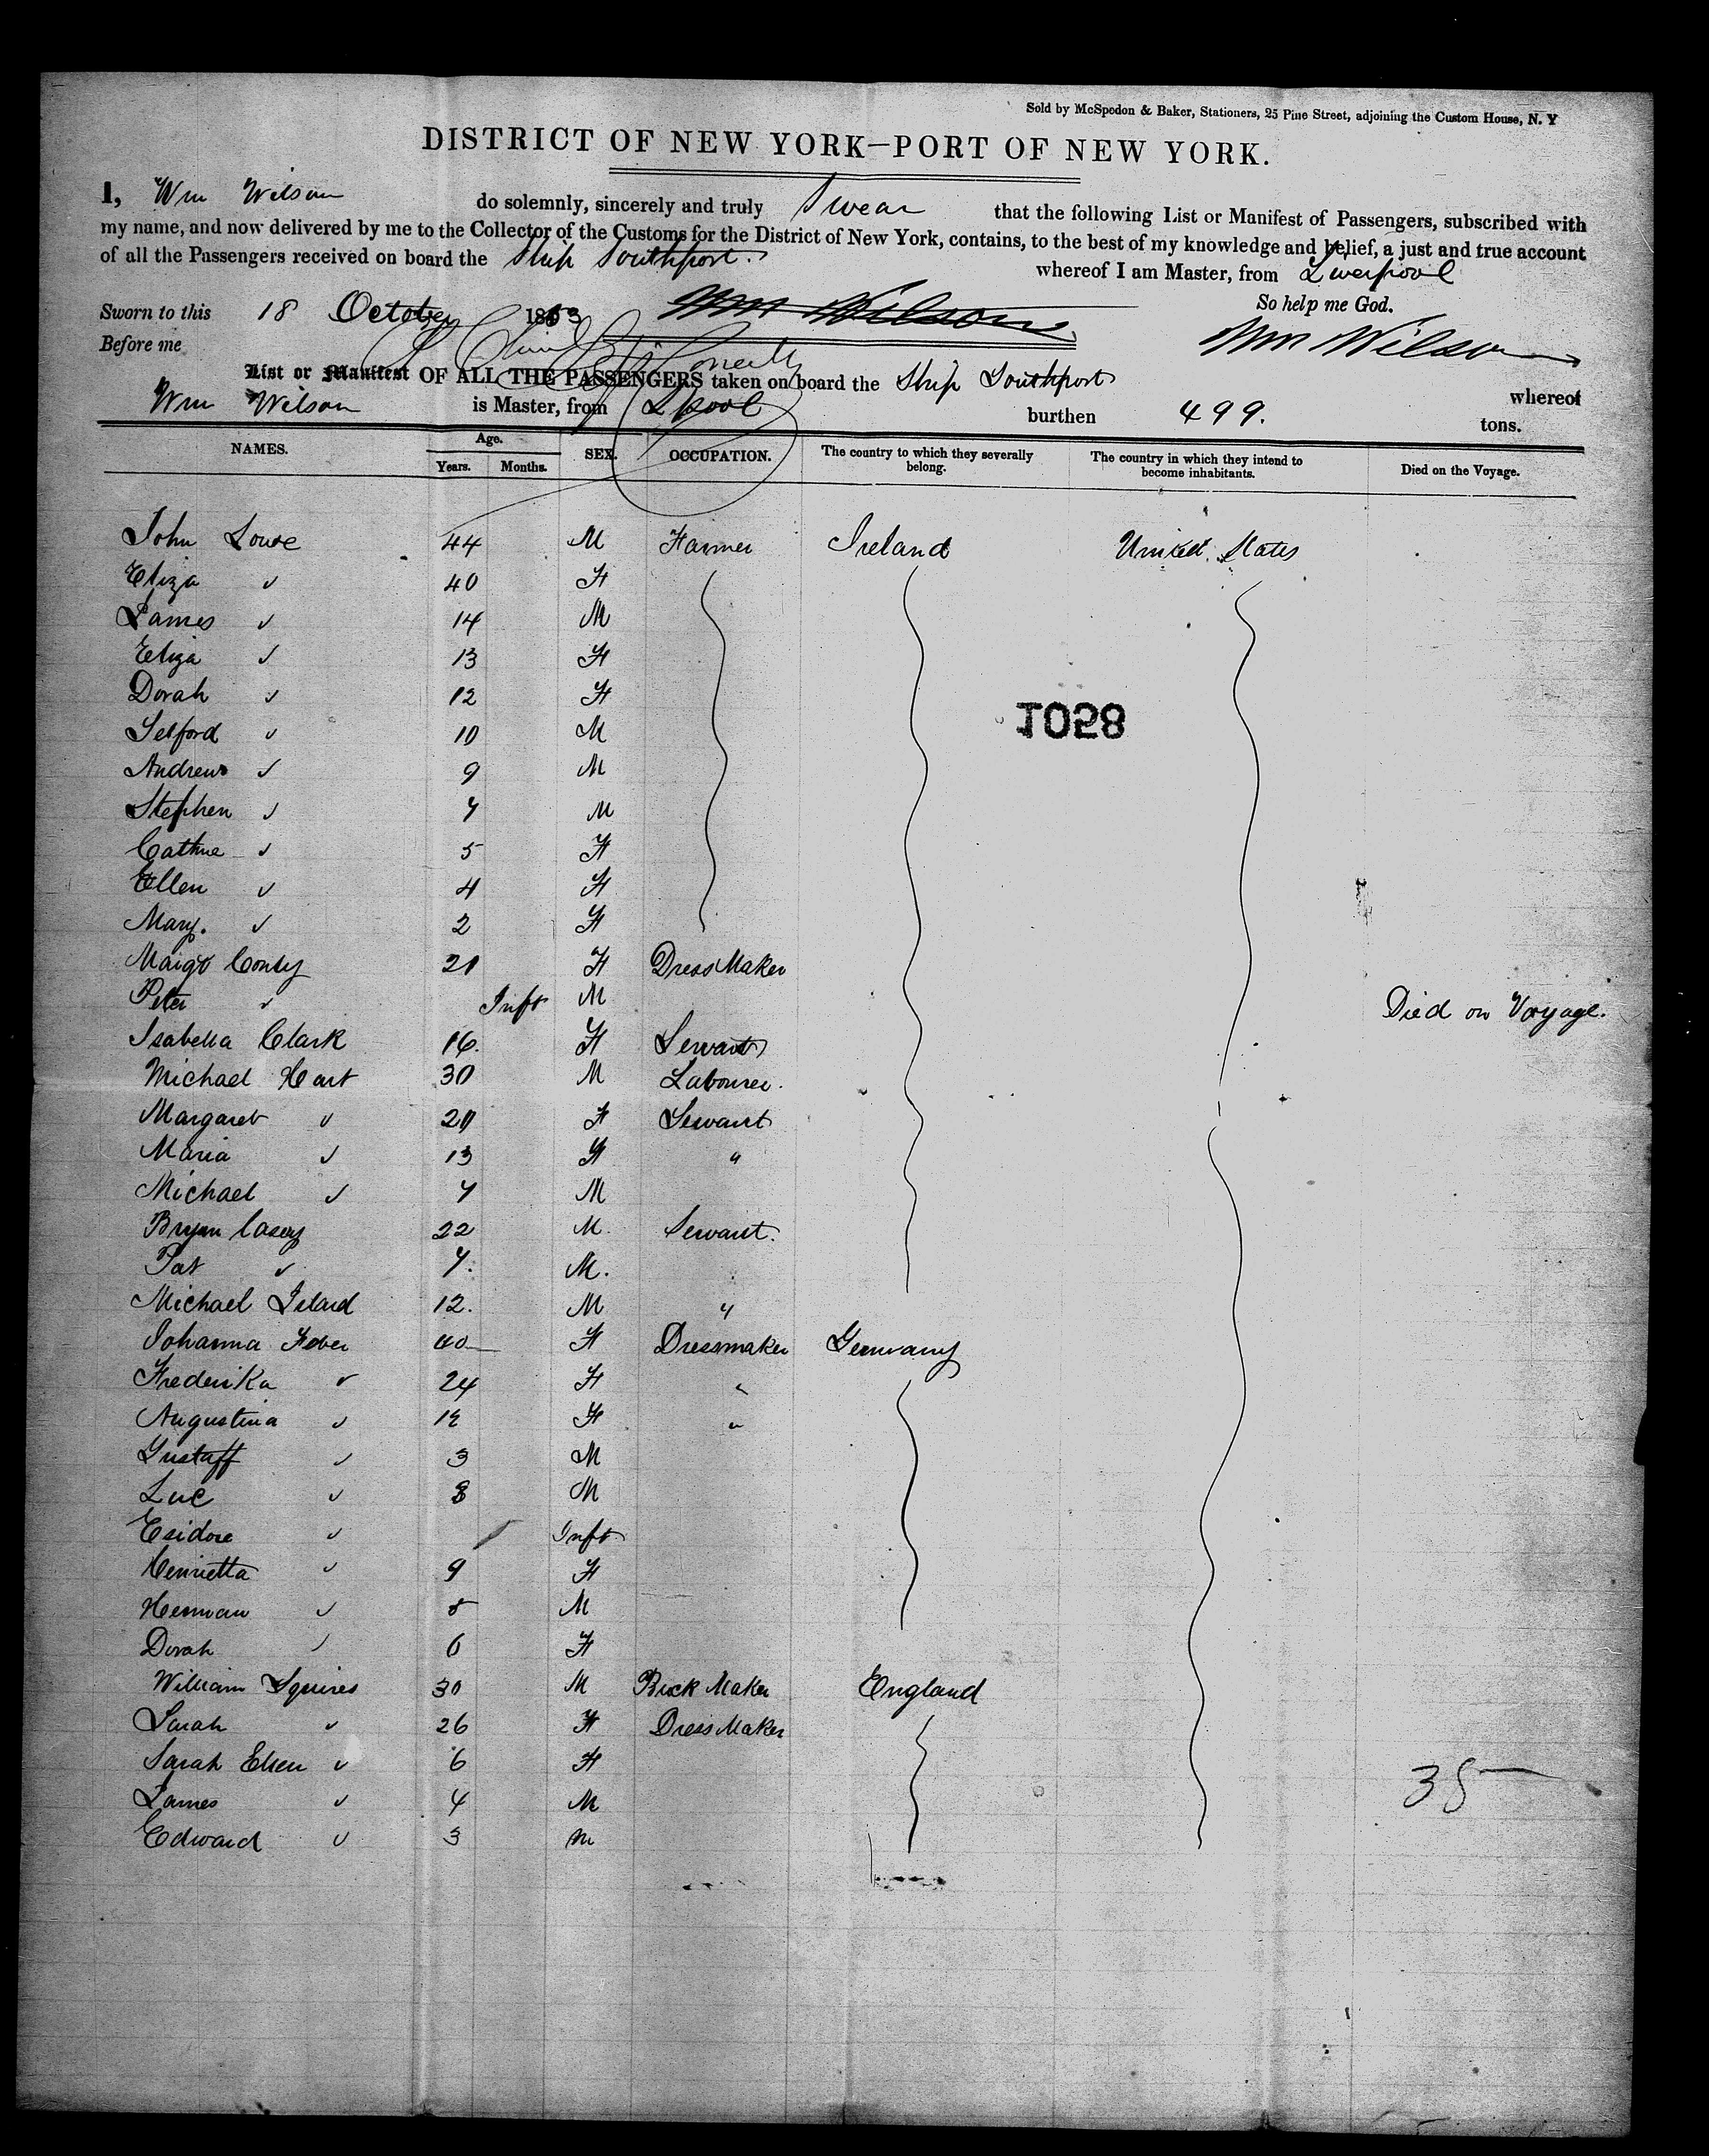 Sold by McSpedon & Baker, Stationers, 25 Pine Street, adjoining the Custom House, N. Y
DISTRICT OF NEW YORK—PORT OF NEW YORK.
I, Wm Wilson do solemnly, sincerely and truly Swear that the following List or Manifest of Passengers, subscribed with
my name, and now delivered by me to the Collector of the Customs for the District of New York, contains, to the best of my knowledge and belief, a just and true account
of all the Passengers received on board the Ship Southport. whereof I am Master, from Liverpool
Sworn to this 18 October 1853 Wm Wilson So help me God.
Before me Wm Wilson
List or Manifest OF ALL THE PASSENGERS taken on board the Ship Southport whereof
Wm Wilson is Master, from Lpool burthen 499. tons.
NAMES. Age. Years. Months. SEX. OCCUPATION. The country to which they severally belong. The country in which they intend to become inhabitants. Died on the Voyage.
John Lowe 44 M Farmer Ireland United States
Eliza 40 F
James 14 M
Eliza 13 F
Dorah 12 F
10 M
1058
Andrew 9 M
Stephen 7 M
Cathne 5 F
Ellen 4 F
Mary. 2 F
Margt 21 F Dress Maker
Peter Inft M Died on Voyage.
Isabella Clark 16. F Servant
Michael Hart 30 M Labourer.
Margaret F Servant
Maria 13 F "
Michael 7 M
Bryan Casey 22 M. Servant.
Pat 7. M.
Michael 12. M "
Johanna 40 F Dressmaker Germany
Frederika 24 F "
Augustina F "
Gustaff 3 M
Luc 8 M
Esidore Inft
Henrietta 9 F
Herman M
Dorah 6 F
William Squires 30 M Brick Maker England
Sarah 26 F Dress Maker
Sarah Ellen 6 F
James 4 M
Edward 3 m
35